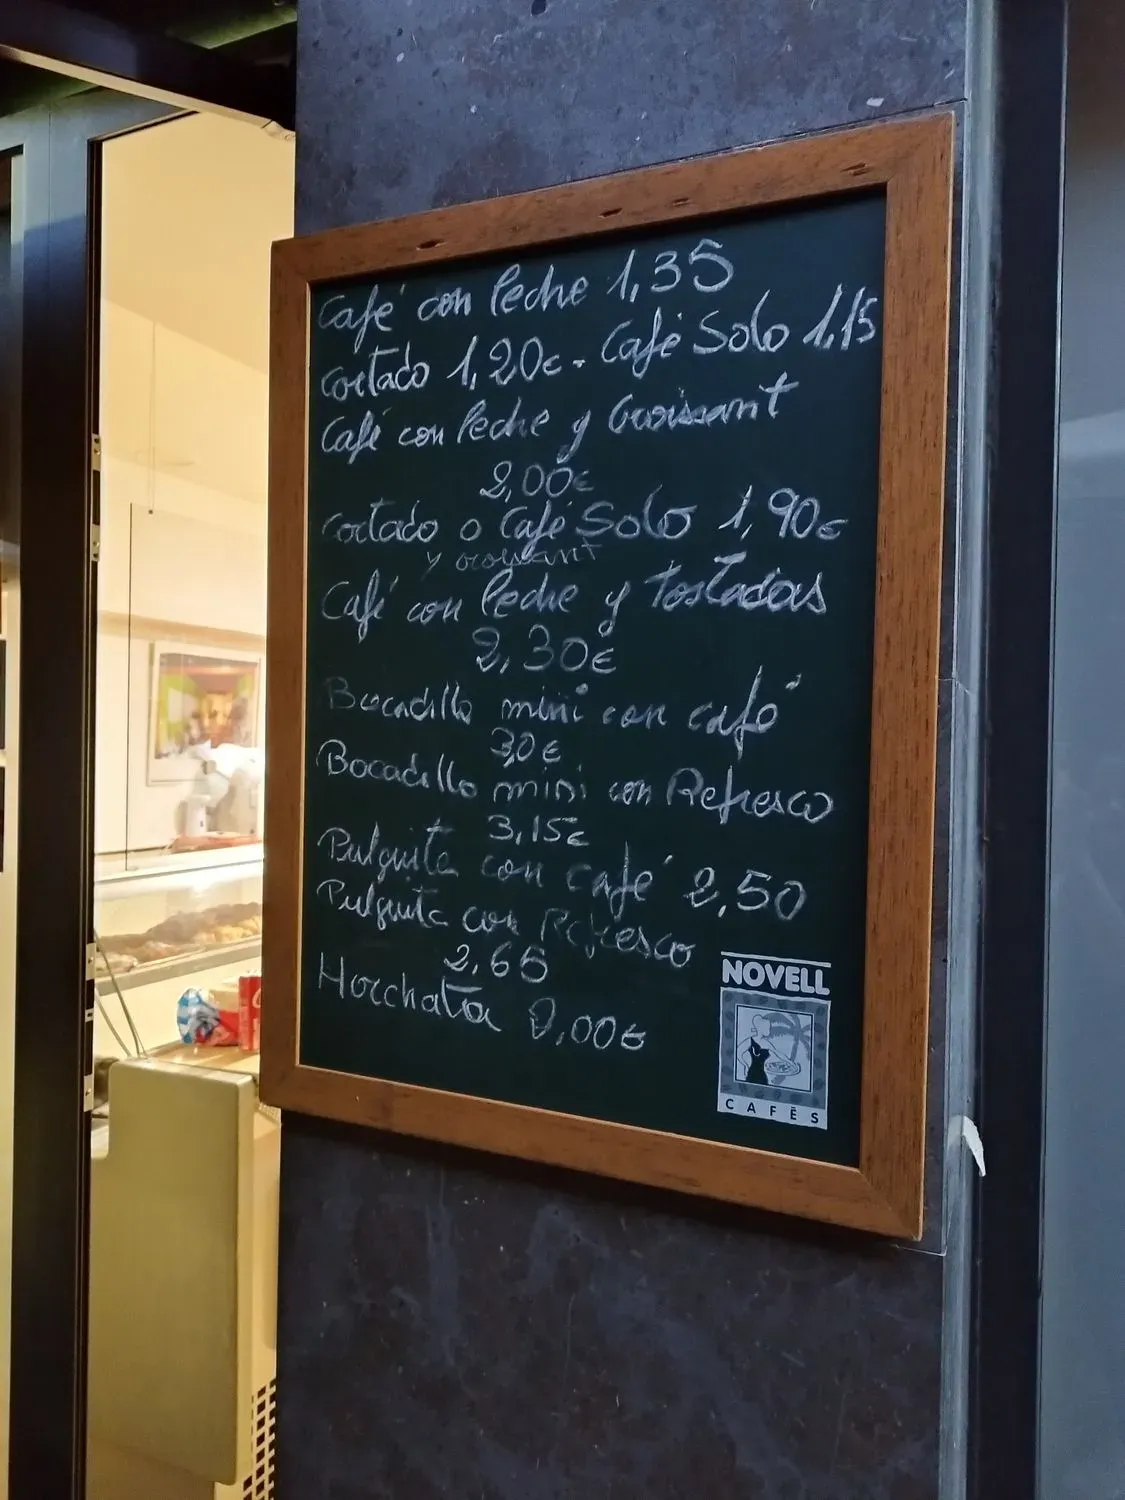 Café con leche 1,35
Cortado 1,20€ - Café Solo 1,15
Café con leche y Croissant
2,00€
Cortado o Café Solo 1,90€
y croissant
Café con leche y tostadas
2,30€
Bocadillo mini con café
3,0€
Bocadillo mini con Refresco
3,15€
Pulguita con café 2,50
Pulguita con Refresco
2,65
Horchata 2,00€
NOVELL
CAFÈS